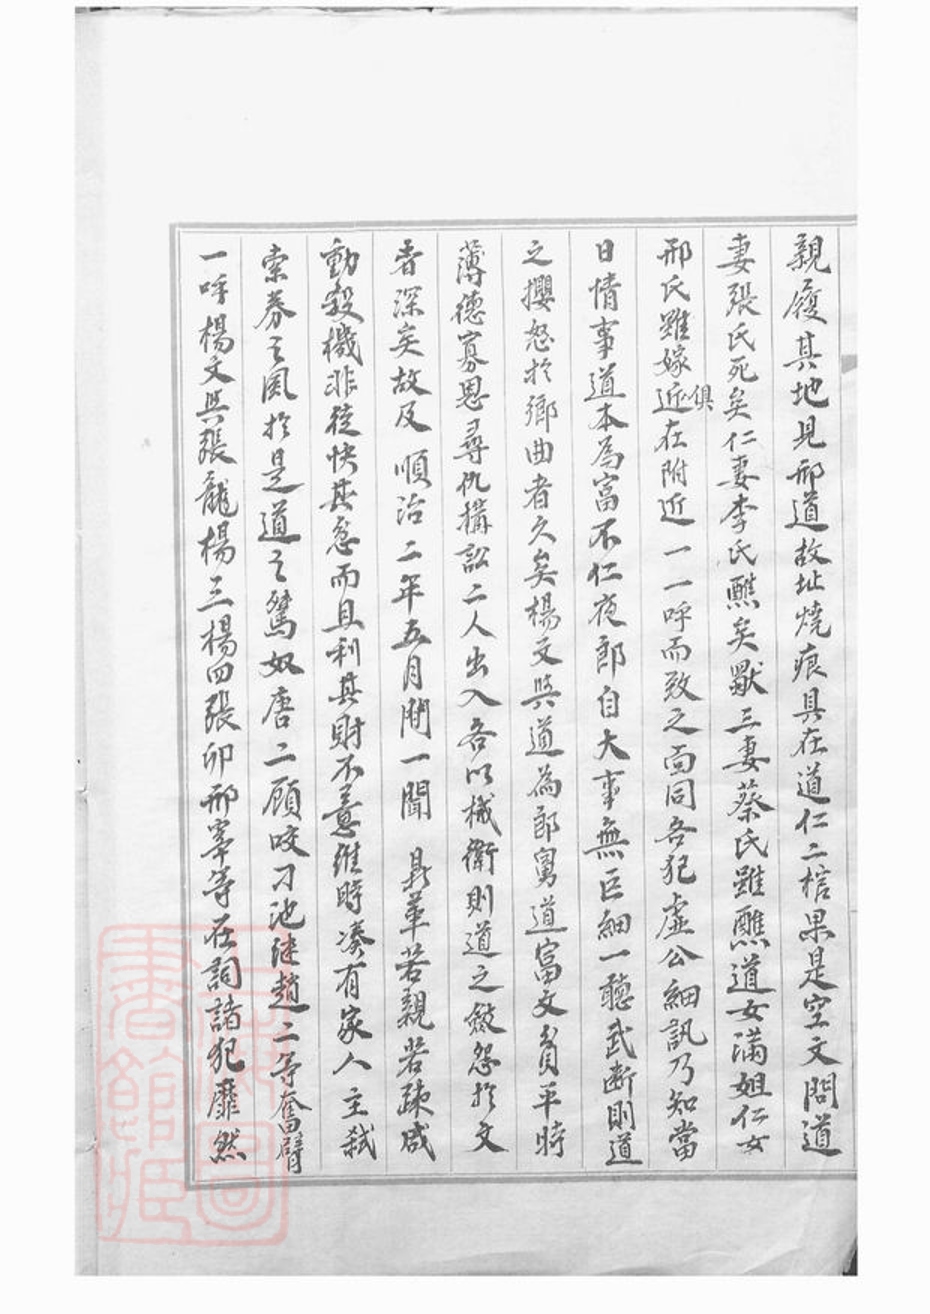 親履其地見邢道故址燒痕具在道仁二棺果是空文問道
妻張氏死矣仁妻李氏醮矣獸三妻蔡氏雖醮道女滿姐仁女
邢氏雖嫁近俱在附近一一呼而致之面同各犯虛公細訊乃知當
日情事道本為富不仁夜郎自大事無巨細一聽武断則道
之攖怒於鄉曲者久矣楊文與道為郎舅道富文貧平時
薄德寡恩尋仇搆訟二人出入各以械衛則道之斂怨於文
者深矣故及順治二年五月閧一聞 鼎革若親若疎咸
動殺機非徒快其忿而且利其財不意維時凑有家人主弒
索券之風於是道之驁奴唐二顧咬刀池継趙二等奮臂
一呼楊文與張龍楊三楊四張卯邢寧等在詞諸犯靡然